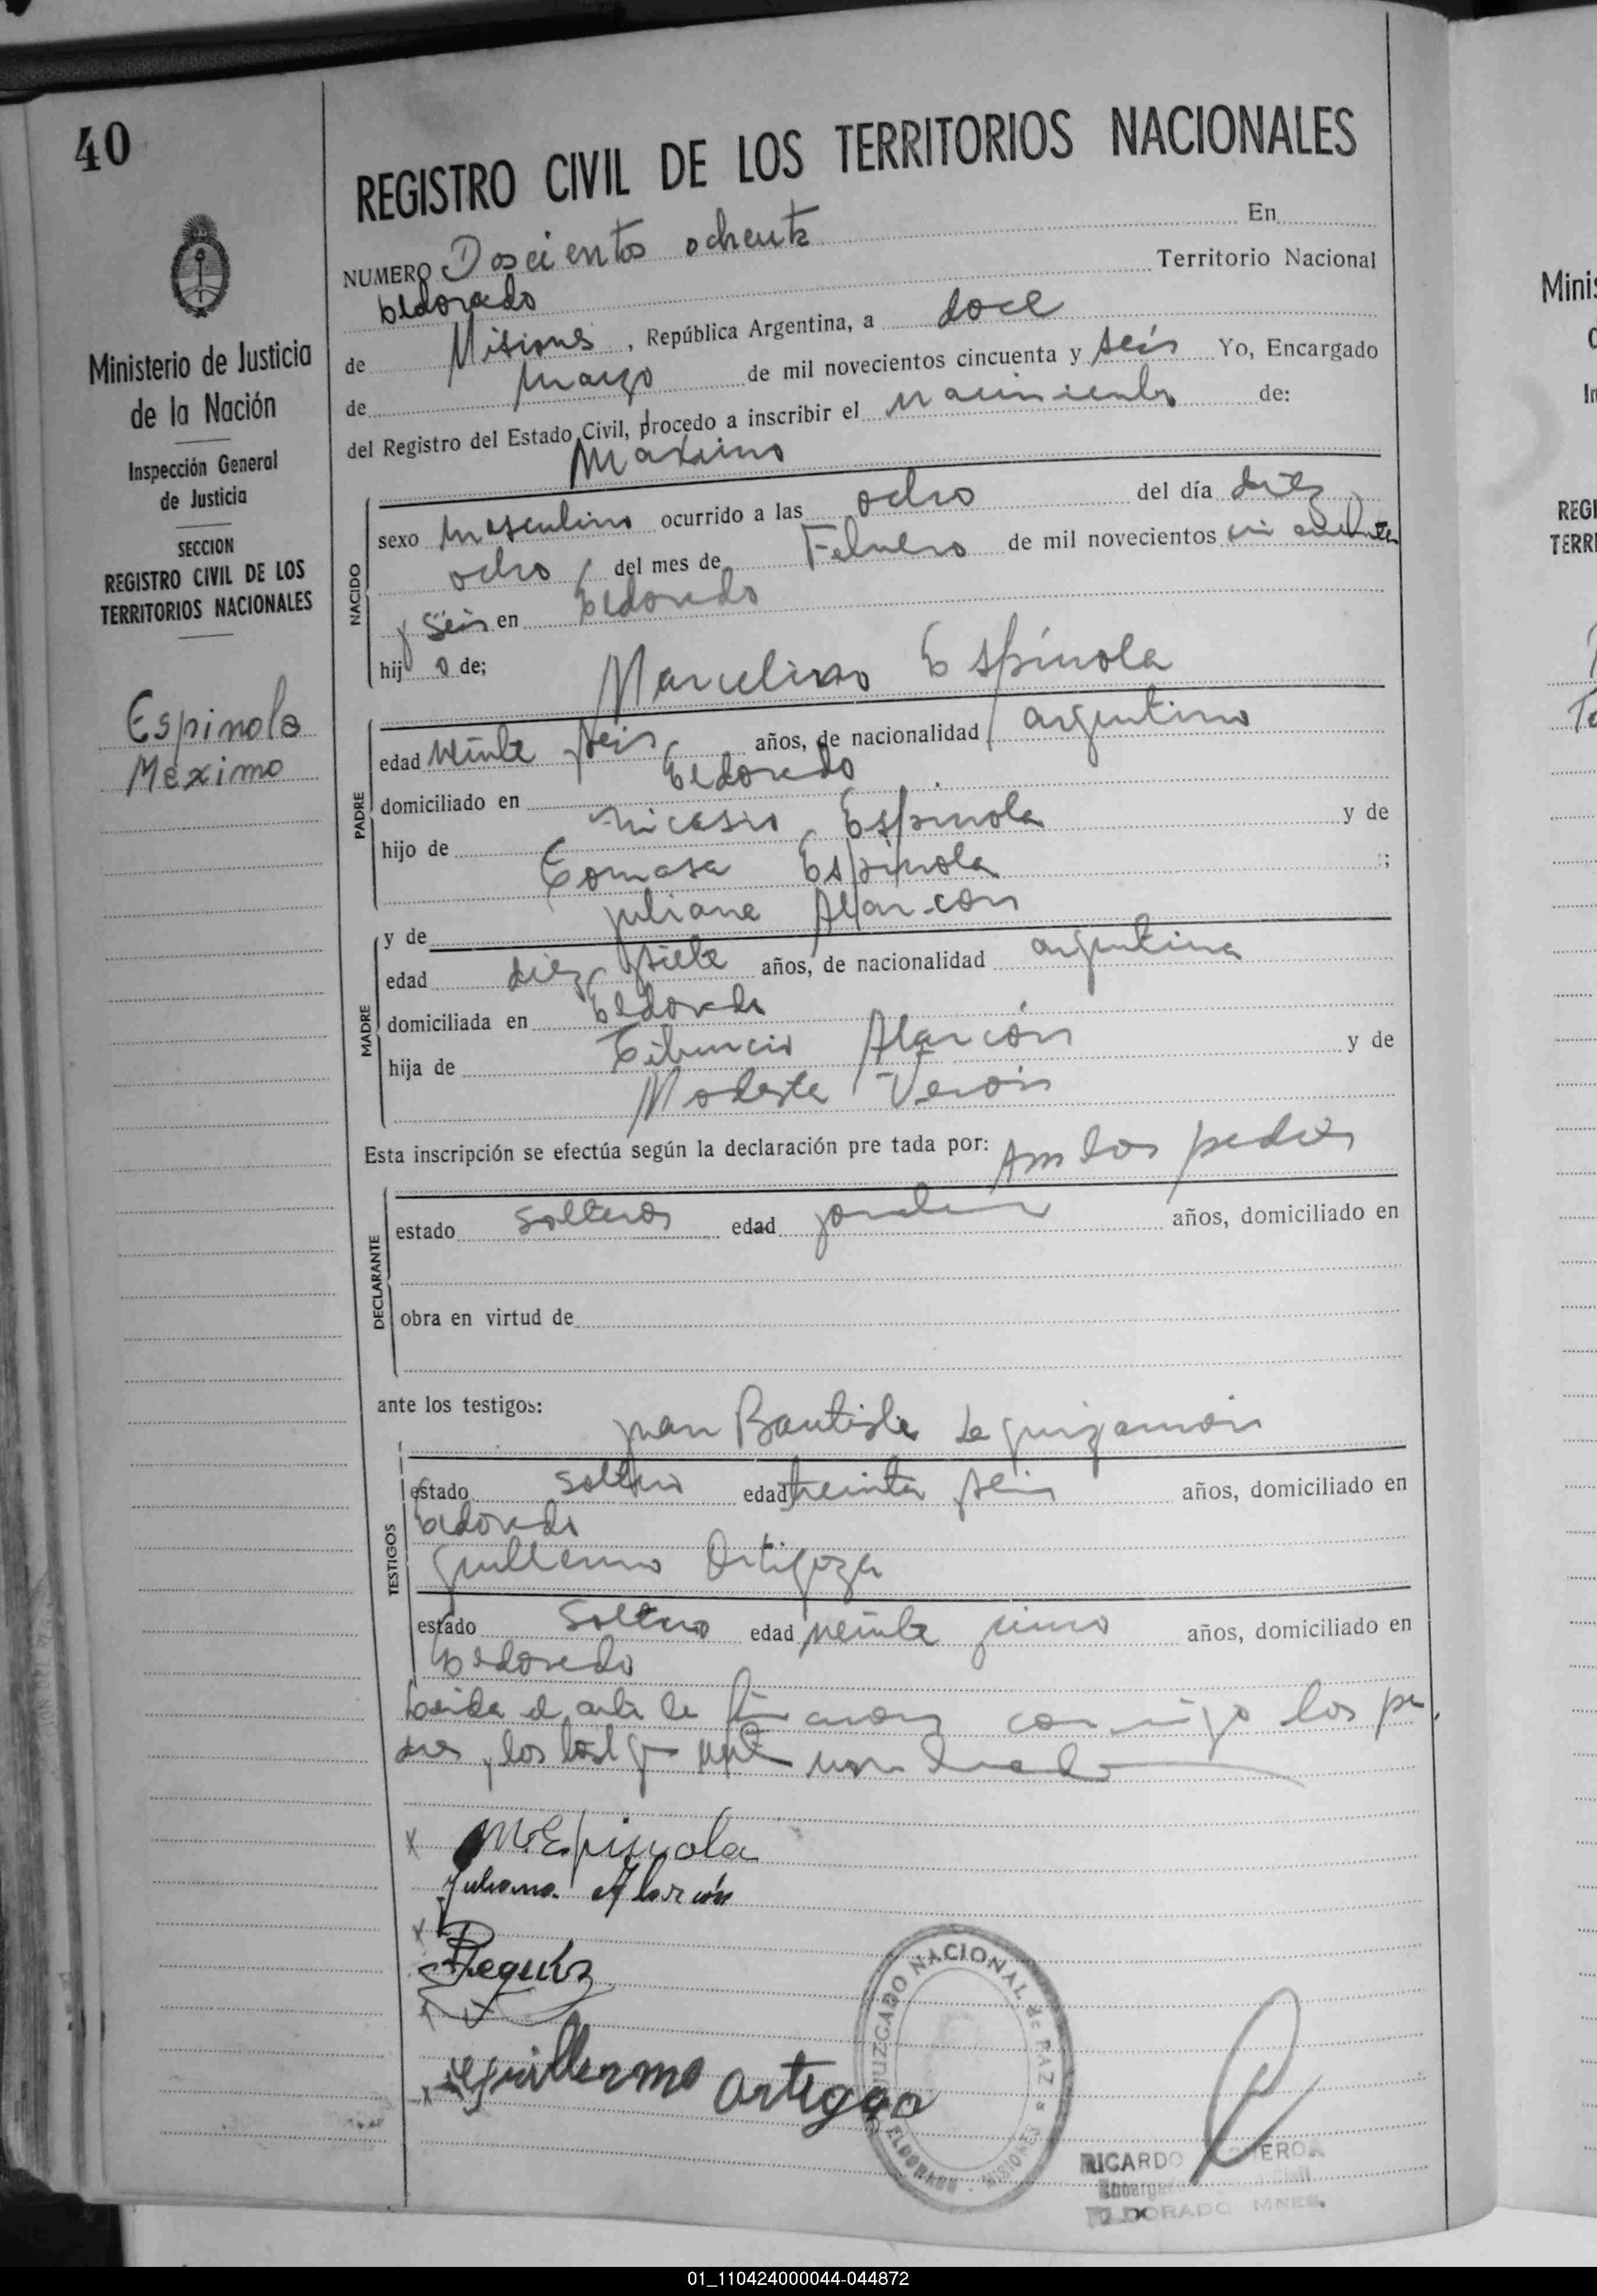 40
Ministerio de Justicia
de la Nación
Inspección General
de Justicia
SECCION
REGISTRO CIVIL DE LOS
TERRITORIOS NACIONALES
Espinola
Máximo
REGISTRO CIVIL DE LOS TERRITORIOS NACIONALES
NUMERO Doscientos ochenta En
Eldorado Territorio Nacional
de Misiones, República Argentina, a doce
de marzo de mil novecientos cincuenta y seis Yo, Encargado
del Registro del Estado Civil, procedo a inscribir el nacimiento de:
Máximo
NACIDO
sexo masculino ocurrido a las ocho del día diez
ocho del mes de Febrero de mil novecientos cincuenta
y seis en Eldorado
hijo de;
Marcelino Espínola
PADRE
edad veinte seis años, de nacionalidad argentino
domiciliado en Eldorado
hijo de Nicasio Espinola y de
Tomasa Espinola ;
y de Juliana Alarcon
MADRE
edad diez y siete años, de nacionalidad argentina
domiciliada en Eldorado
hija de Tiburcio Alarcón y de
Modesta Verón
Esta inscripción se efectúa según la declaración pre tada por: Ambos padres
DECLARANTE
estado solteros edad años, domiciliado en
obra en virtud de
ante los testigos:
Juan Bautista Leguizamón
TESTIGOS
estado soltero edad treinta seis años, domiciliado en
Eldorado
Guillermo Ortigoza
estado soltero edad veinte cinco años, domiciliado en
Eldorado
Leida el acta la firmaron conmigo los pa
dres y los testigos
M. Espinola
Juliana Alarcón
Guillermo Ortigoza
JUZGADO NACIONAL de PAZ
ELDORADO - MISIONES
RICARDO
ELDORADO MNES.
01_110424000044-044872